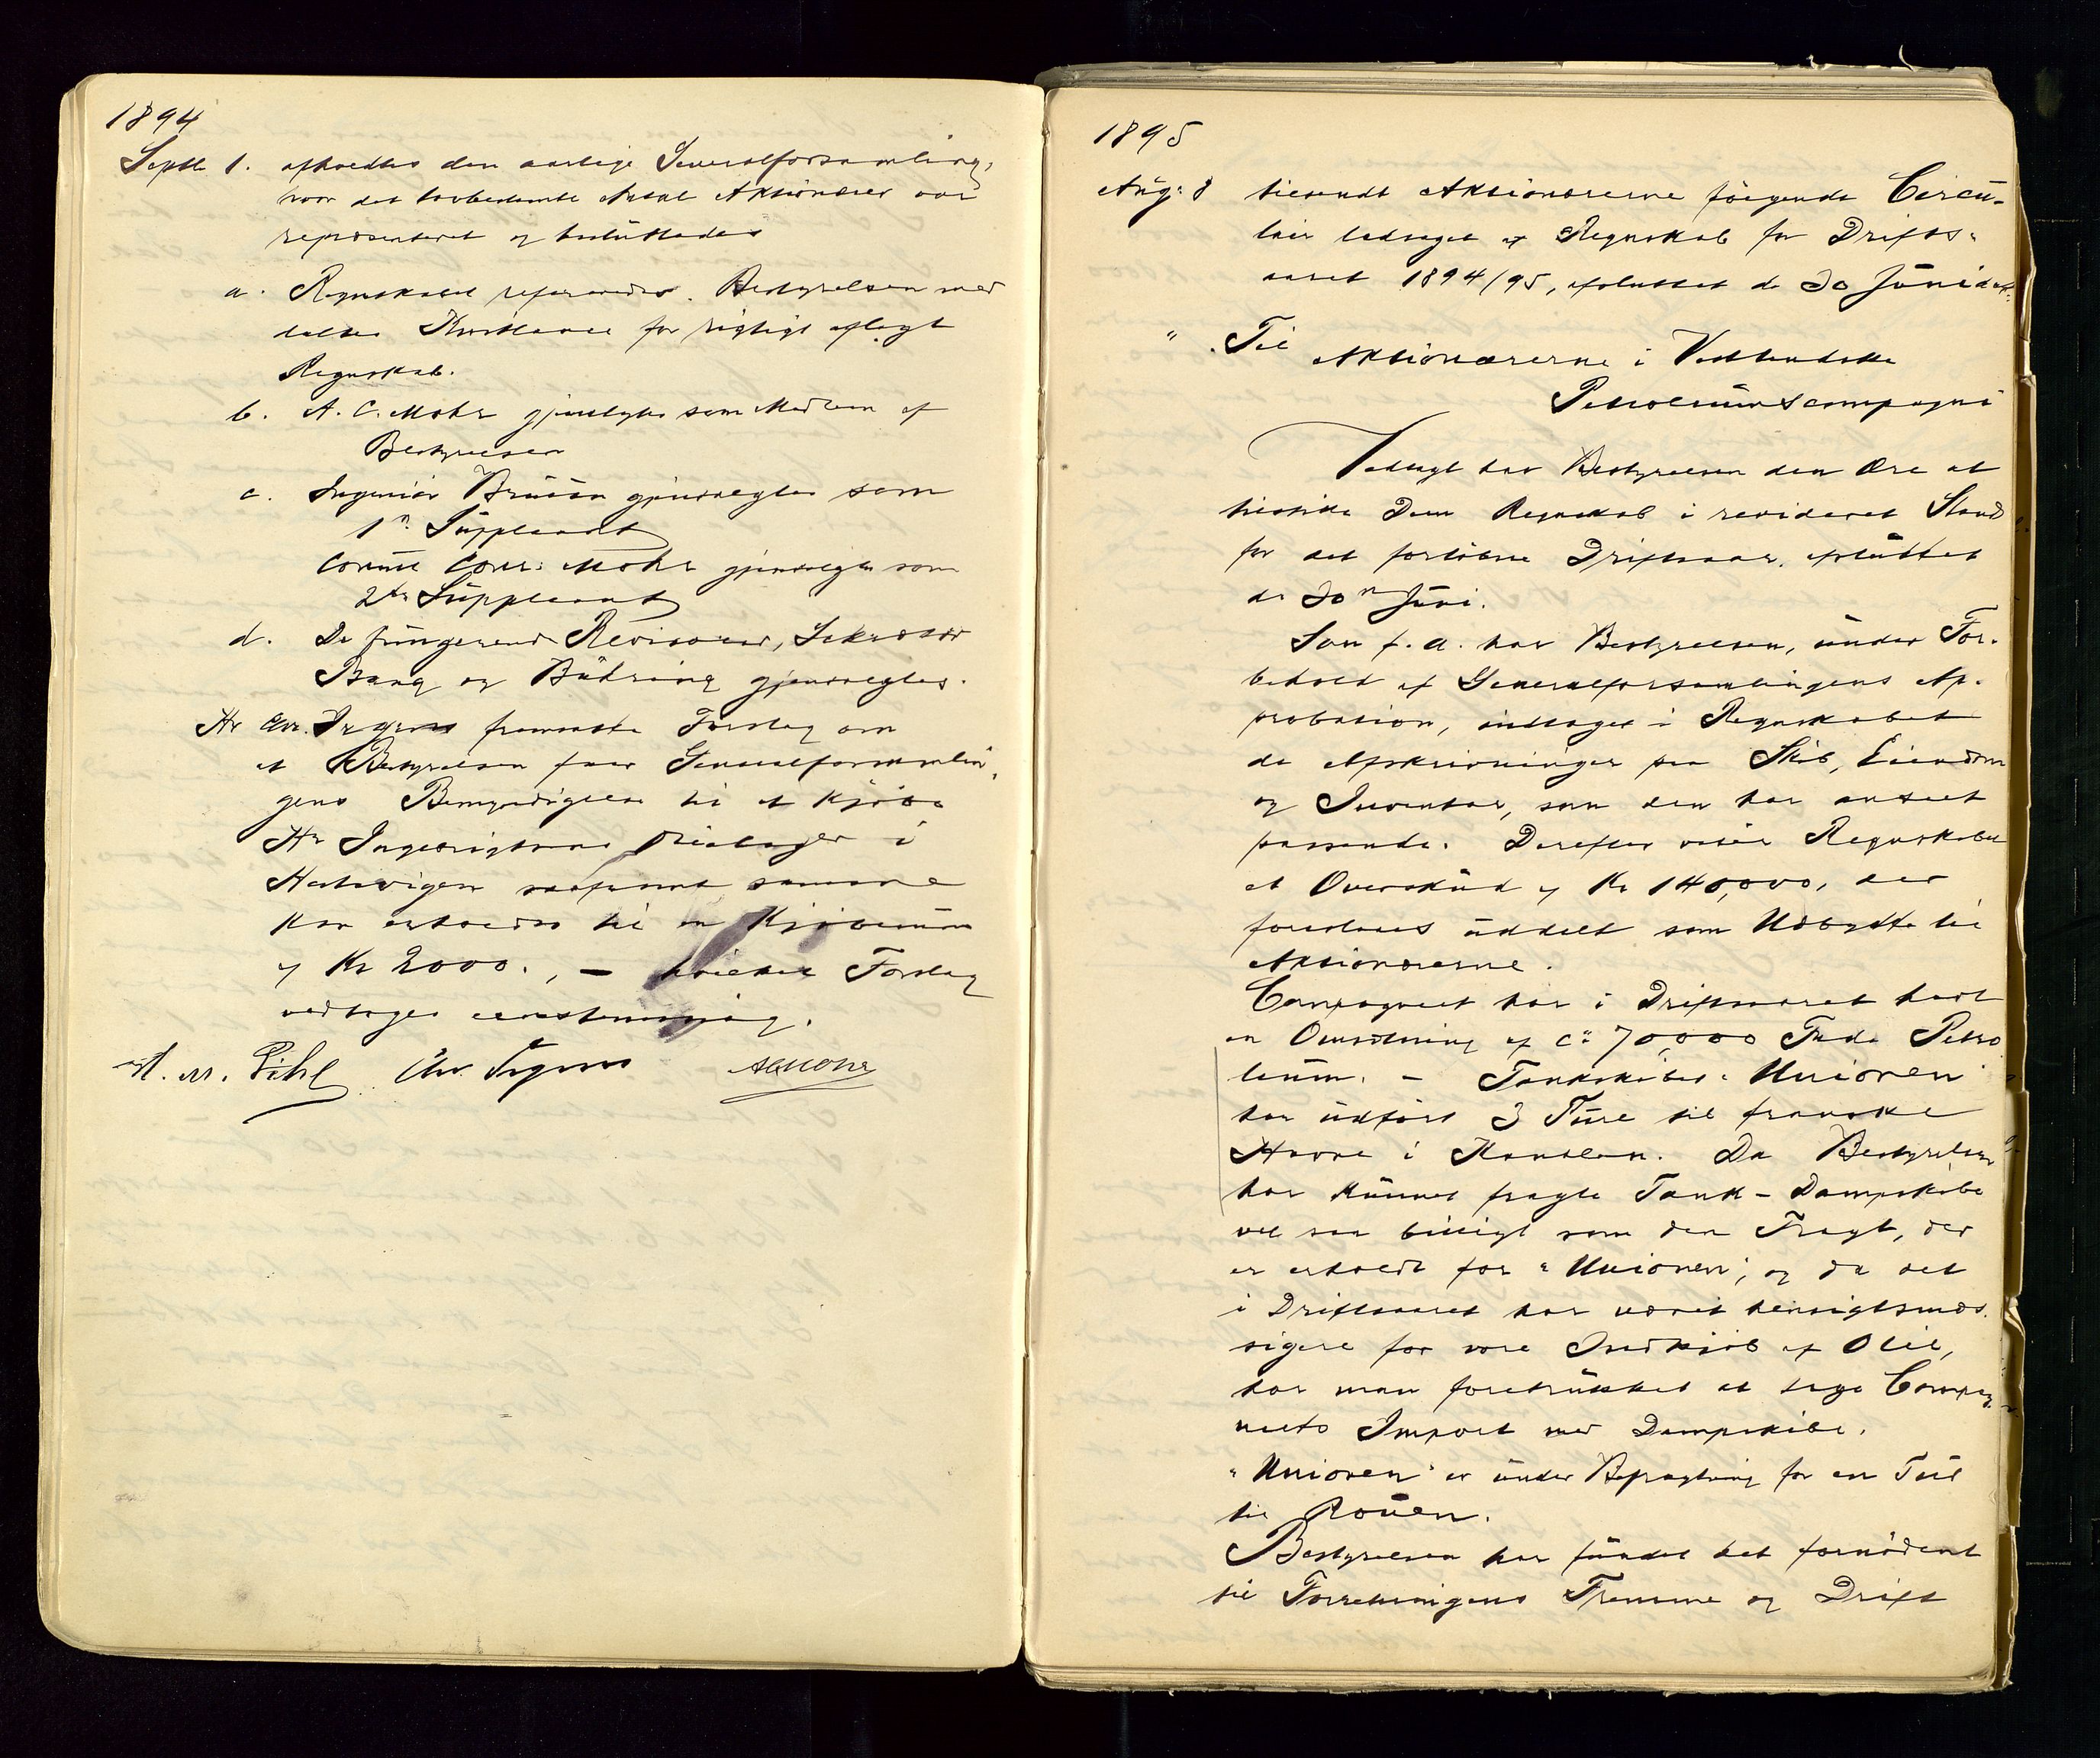 1894
Septb 1. afholdtes den aarlige Generalforsamling,
hvor det lovbestemte Antal Aktionærer var
repræsenteret og besluttedes
a. Regnskabet refereredes. Bestyrelsen med
deltes Kvittance for rigtigt aflagt
Regnskab.
b. A. C. Mohr gjenvalgtes som Medlem af
Bestyrelsen
c. Ingeniör Bruun gjenvalgtes som
1ste Suppleant
Consul Conr. Mohr gjenvalgtes som
2den Suppleant
d. De fungerende Revisorer, Sekretær
Bang og Bühring gjenvalgtes.
Hr Chr. Irgens fremsatte Forslag om
at Bestyrelsen faar Generalforsamlin,
gens Bemyndigelse til at kjöbe
Hr Ingebrigtsens Prælager i
Hatvigen saafremt samme
kan erholdes til en Kjöbesum
af Kr 2000., — hvilket Forslag
vedtoges eenstemmig.
M. M. Pihl Chr. Irgens ACMohr
1895
Aug: 8 tilsendt Aktionærerne fölgende Circu-
lair ledsaget af Regnskab for Drifts-
aaret 1894/95, afsluttet de 30 Juni d.A.:
" Til
Aktionærerne i Vestlandske
Petroleumscompagni
Vedlagt har Bestyrelsen den Ære at
tilstille Dem Regnskab i revideret Stand
for det forlöbne Driftsaar, afsluttet
de 30te Juni.
Som f. A. har Bestyrelsen, under For-
behold af Generalforsamlingens Ap-
probation, indtaget i Regnskabet
de Afskrivninger paa Skib, Eiendom
og Inventar, som den har anseet
passende. Derefter viser Regnskabet
et Overskud af Kr 140,000, der
foreslaaes uddelt som Udbytte til
Aktionærerne.
Compagniet har i Driftsaaret havt
en Omsætning af ca 70,000 Fade Petro
leum. — Tankskibet "Unionen"
har udfört 3 Ture til franske
Havne i Kanalen. Da Bestyrelsen
har kunnet fragte Tank-Dampskibe
vel saa billigt som den Fragt, der
er erholdt for "Unionen", og da det
i Driftsaaret har været hensigtsmæs
sigere for vore Indkjöb af Olie,
har man foretrukket at tage Compag
niets Import med Dampskibe.
"Unionen" er under Befragtning for en Tur
til Rouen.
Bestyrelsen har fundet det fornödent
til Forretningens Fremme og Drift